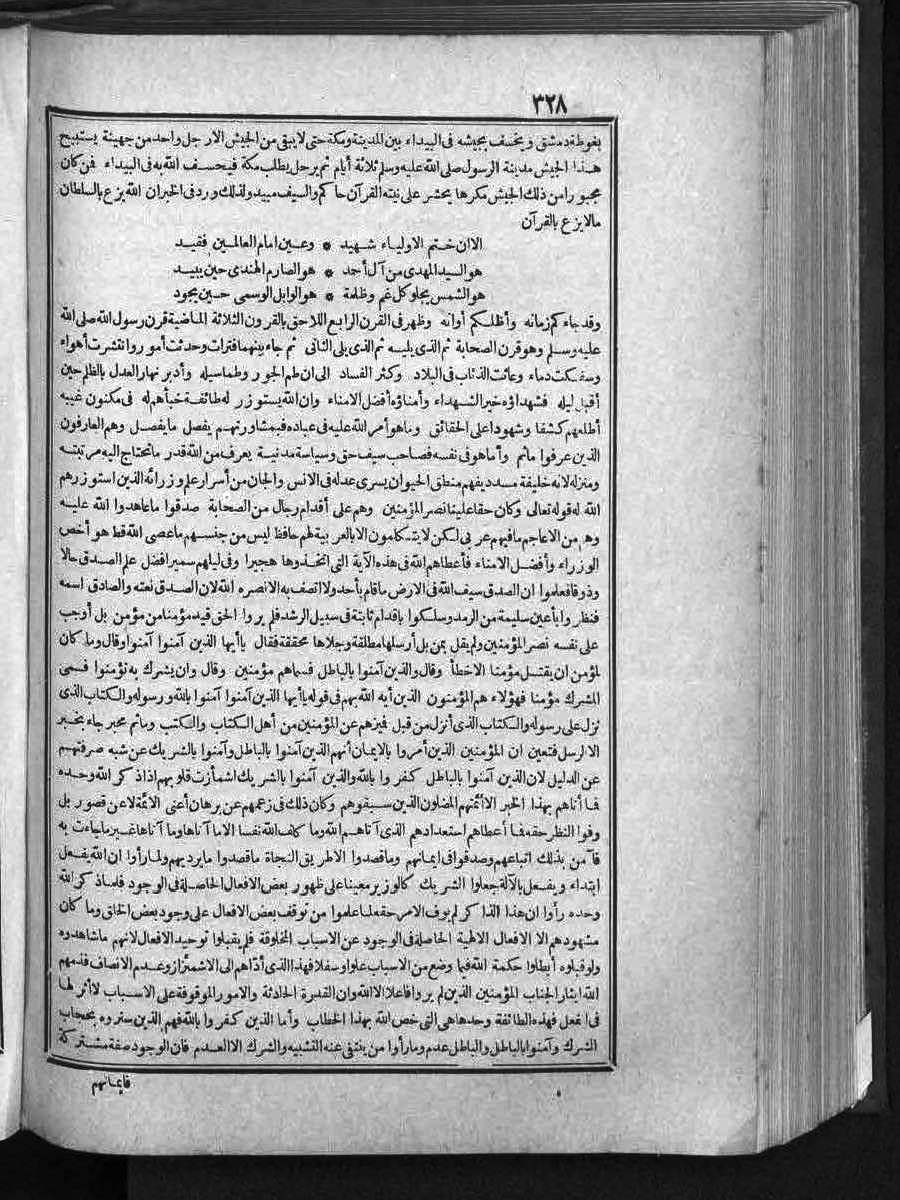 ٣٢٨
بغوطة دمشق ويخسف بجيشه فى البيداء بين المدينة ومكة حتى لا يبقى من الجيش الا رجل واحد من جهينة يستبيح
هذا الجيش مدينة الرسول صلى الله عليه وسلم ثلاثة أيام ثم يرحل يطلب مكة فيخسف الله به فى البيداء فمن كان
مجبورا من ذلك الجيش مكرها يحشر على نيته القرآن حاكم والسيف مبيد ولذلك ورد فى الخبر ان الله يزع بالسلطان
مالا يزع بالقرآن
الا ان ختم الاولياء شهيد * وعين امام العالمين فقيد
هو السيد المهدى من آل أحمد * هو الصارم الهندى حين يبيد
هو الشمس يجلو كل غم وظلمة * هو الوابل الوسمى حين يجود
وقد جاءكم زمانه وأظلكم أوانه وظهر فى القرن الرابع اللاحق بالقرون الثلاثة الماضية قرن رسول الله صلى الله
عليه وسلم وهو قرن الصحابة ثم الذى يليه ثم الذى يلى الثانى ثم جاء بينهما فترات وحدثت أمور وانتشرت أهواء
وسفكت دماء وعاثت الذئاب فى البلاد وكثر الفساد الى ان طم الجور وطما سيله وأدبر نهار العدل بالظلم حين
أقبل ليله فشهداؤه خير الشهداء وأمناؤه أفضل الامناء وان الله يستوزر له طائفة خبأهم له فى مكنون غيبه
أطلعهم كشفا وشهودا على الحقائق وما هو أمر الله عليه فى عباده فبمشاورتهم يفصل ما يفصل وهم العارفون
الذين عرفوا ماثم وأما هو فى نفسه فصاحب سيف حق وسياسة مدنية يعرف من الله قدر ما تحتاج اليه مرتبته
ومنزله لانه خليفة مسدد يفهم منطق الحيوان يسرى عدله فى الانس والجان من أسرار علم وزرائه الذين استوزرهم
الله له قوله تعالى وكان حقا علينا نصر المؤمنين وهم على أقدام رجال من الصحابة صدقوا ما عاهدوا الله عليه
وهم من الاعاجم ما فيهم عربى لكن لا يتكلمون الا بالعربية لهم حافظ ليس من جنسهم ما عصى الله قط هو أخص
الوزراء وأفضل الامناء فأعطاهم الله فى هذه الآية التى اتخذوها هجيرا وفى ليلهم سميرا فضل علم الصدق حالا
وذوقا فعلموا ان الصدق سيف الله فى الارض ما قام بأحد ولا اتصف به الا نصره الله لان الصدق نعته والصادق اسمه
فنظروا بأعين سليمة من الرمد وسلكوا باقدام ثابتة فى سبيل الرشد فلم يروا الحق قيد مؤمنا من مؤمن بل أوجب
على نفسه نصر المؤمنين ولم يقل بمن بل أرسلها مطلقة وجلاها محققة فقال يا أيها الذين آمنوا آمنوا وقال وما كان
لمؤمن ان يقتل مؤمنا الا خطأ وقال والذين آمنوا بالباطل فسماهم مؤمنين وقال وان يشرك به تؤمنوا فسمى
المشرك مؤمنا فهؤلاء هم المؤمنون الذين أيه الله بهم فى قوله يا أيها الذين آمنوا آمنوا بالله ورسوله والكتاب الذى
نزل على رسوله والكتاب الذى أنزل من قبل فيزهم عن المؤمنين من أهل الكتاب والكتب وماثم مخبر جاء بخبر
الا الرسل فتعين ان المؤمنين الذين أمروا بالايمان أنهم الذين آمنوا بالباطل وآمنوا بالشريك عن شبه صرفتهم
عن الدليل لان الذين آمنوا بالباطل كفروا بالله والذين آمنوا بالشريك اشمأزت قلوبهم اذا ذكر الله وحده
فما أتاهم بهذا الخبر الا أئمتهم المضلون الذين سبقوهم وكان ذلك فى زعمهم عن برهان أعنى الائمة لا عن قصور بل
وفوا النظر حقه فما أعطاهم استعدادهم الذى آتاهم الله وما كلف الله نفسا الا ما آتاها وما آتاها غير ما جاءت به
فآمن بذلك اتباعهم وصدقوا فى ايمانهم وما قصدوا الا طريق النجاة ما قصدوا ما يرديهم ولما رأوا ان الله يفعل
ابتداء ويفعل بالآلة جعلوا الشريك كالوزير معينا على ظهور بعض الافعال الحاصلة فى الوجود فلما ذكر الله
وحده رأوا ان هذا الذاكر لم يوف الامر حقه لما علموا من توقف بعض الافعال على وجود بعض الخلق وما كان
مشهودهم الا الافعال الالهية الحاصلة فى الوجود عن الاسباب المخلوقة فلم يقبلوا توحيد الافعال لانهم ما شاهدوه
ولو قبلوه أبطلوا حكمة الله فيما وضع من الاسباب علوا وسفلا فهذا الذى أداهم الى الاشمئزاز وعدم الانصاف فذمهم
الله ايثار الجناب المؤمنين الذين لم يروا فاعلا الا الله وان القدرة الحادثة والامور الموقوفة على الاسباب لا أثر لها
فى الفعل فهذه الطائفة وحدها هى التى خص الله بهذا الخطاب وأما الذين كفروا بالله فهم الذين ستروه بحجاب
الشرك وآمنوا بالباطل والباطل عدم وما رأوا من ينتفى عنه التشبيه والشرك الا العدم فان الوجود صفة مشتركة
فايمانهم